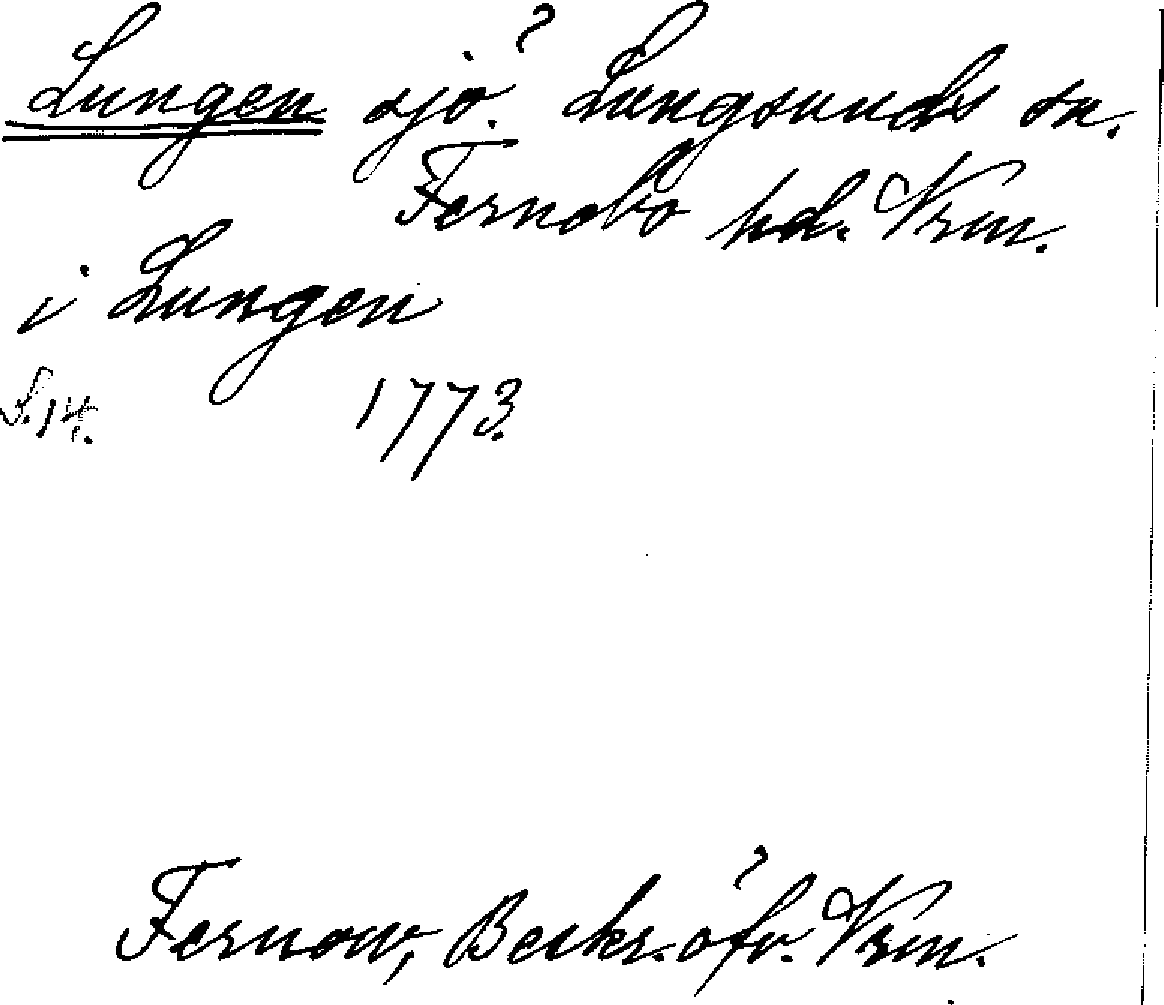 Lungen sjö. Lungsunds sn.
Fernebo hd. Vrm.
i Lungen
S. 14. 1773.
Fernow, Beskr. öfv. Vrm.